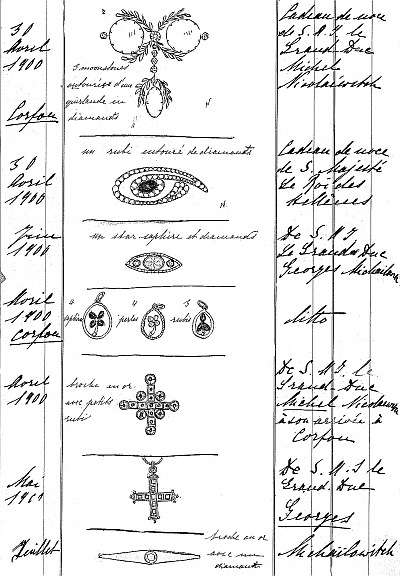 30
Avril
1900
Corfou
3 moonstones
entourées d'une
guirlande en
diamants
Cadeau de noce
de S. A. I. le
Grand Duc
Michel
Nicolaéwitch
30
Avril
1900
un rubi entouré de diamants
Cadeau de noce
de S. Majesté
Le Roi des
Hellènes
Juin
1900
un star saphire et diamants
De S. A. I.
Le Grand Duc
Georges
Avril
1900
Corfou
4
saphire
4
perles
3
rubis
ditto
Avril
1900
broche en or
avec petits
rubi
De S. A. I. le
Grand Duc
Michel
à son arrivée à
Corfou
Mai
De S. A. I. le
Grand Duc
Georges
Michailowitch
Juillet
broche en or
avec un
diamant